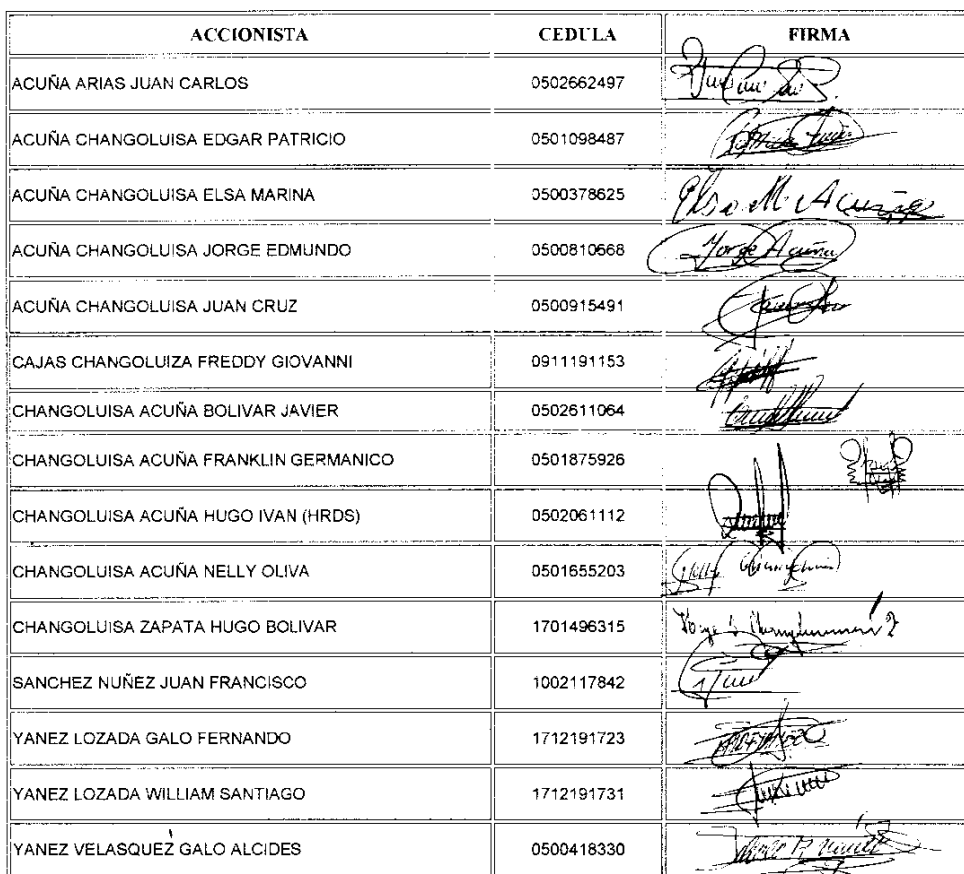 ACCIONISTA CEDULA FIRMA
ACUÑA ARIAS JUAN CARLOS 0502662497
ACUÑA CHANGOLUISA EDGAR PATRICIO 0501098487
ACUÑA CHANGOLUISA ELSA MARINA 0500378625 Elsa M Acuña
ACUÑA CHANGOLUISA JORGE EDMUNDO 0500810668 Jorge Acuña
ACUÑA CHANGOLUISA JUAN CRUZ 0500915491
CAJAS CHANGOLUIZA FREDDY GIOVANNI 0911191153
CHANGOLUISA ACUÑA BOLIVAR JAVIER 0502611064
CHANGOLUISA ACUÑA FRANKLIN GERMANICO 0501875926
CHANGOLUISA ACUÑA HUGO IVAN (HRDS) 0502061112
CHANGOLUISA ACUÑA NELLY OLIVA 0501655203
CHANGOLUISA ZAPATA HUGO BOLIVAR 1701496315
SANCHEZ NUÑEZ JUAN FRANCISCO 1002117842
YANEZ LOZADA GALO FERNANDO 1712191723
YANEZ LOZADA WILLIAM SANTIAGO 1712191731
YANEZ VELASQUEZ GALO ALCIDES 0500418330